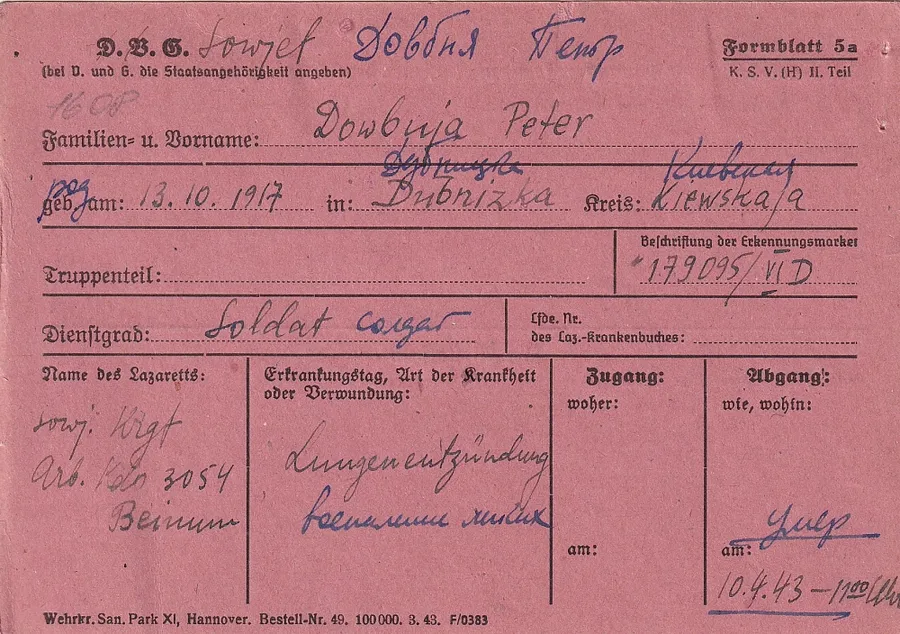 D. V. G. Sowjet Довбня Петр
Formblatt 5a
(bei V. und G. die Staatsangehörigkeit angeben)
K. S. V. (H) II. Teil
1608
Familien= u. Vorname: Dowbnja Peter
Дубницка Киевская
род
geb. am: 13. 10. 1917 in: Dubnizka Kreis: Kiewskaja
Beschriftung der Erkennungsmarke:
179095/VI D
Truppenteil:
Dienstgrad: Soldat солдат
Lfde. Nr.
des Laz.-Krankenbuches:
Name des Lazaretts:
sowj. Krgf
Arb. Kdo 3054
Beinum
Erkrankungstag, Art der Krankheit
oder Verwundung:
Lungenentzündung
воспаление легких
Zugang:
woher:
am:
Abgang:
wie, wohin:
умер
am:
10.4.43 – 11⁰⁰ Uhr
Wehrkr. San. Park XI, Hannover. Bestell-Nr. 49. 100000. 3. 43. F/0383